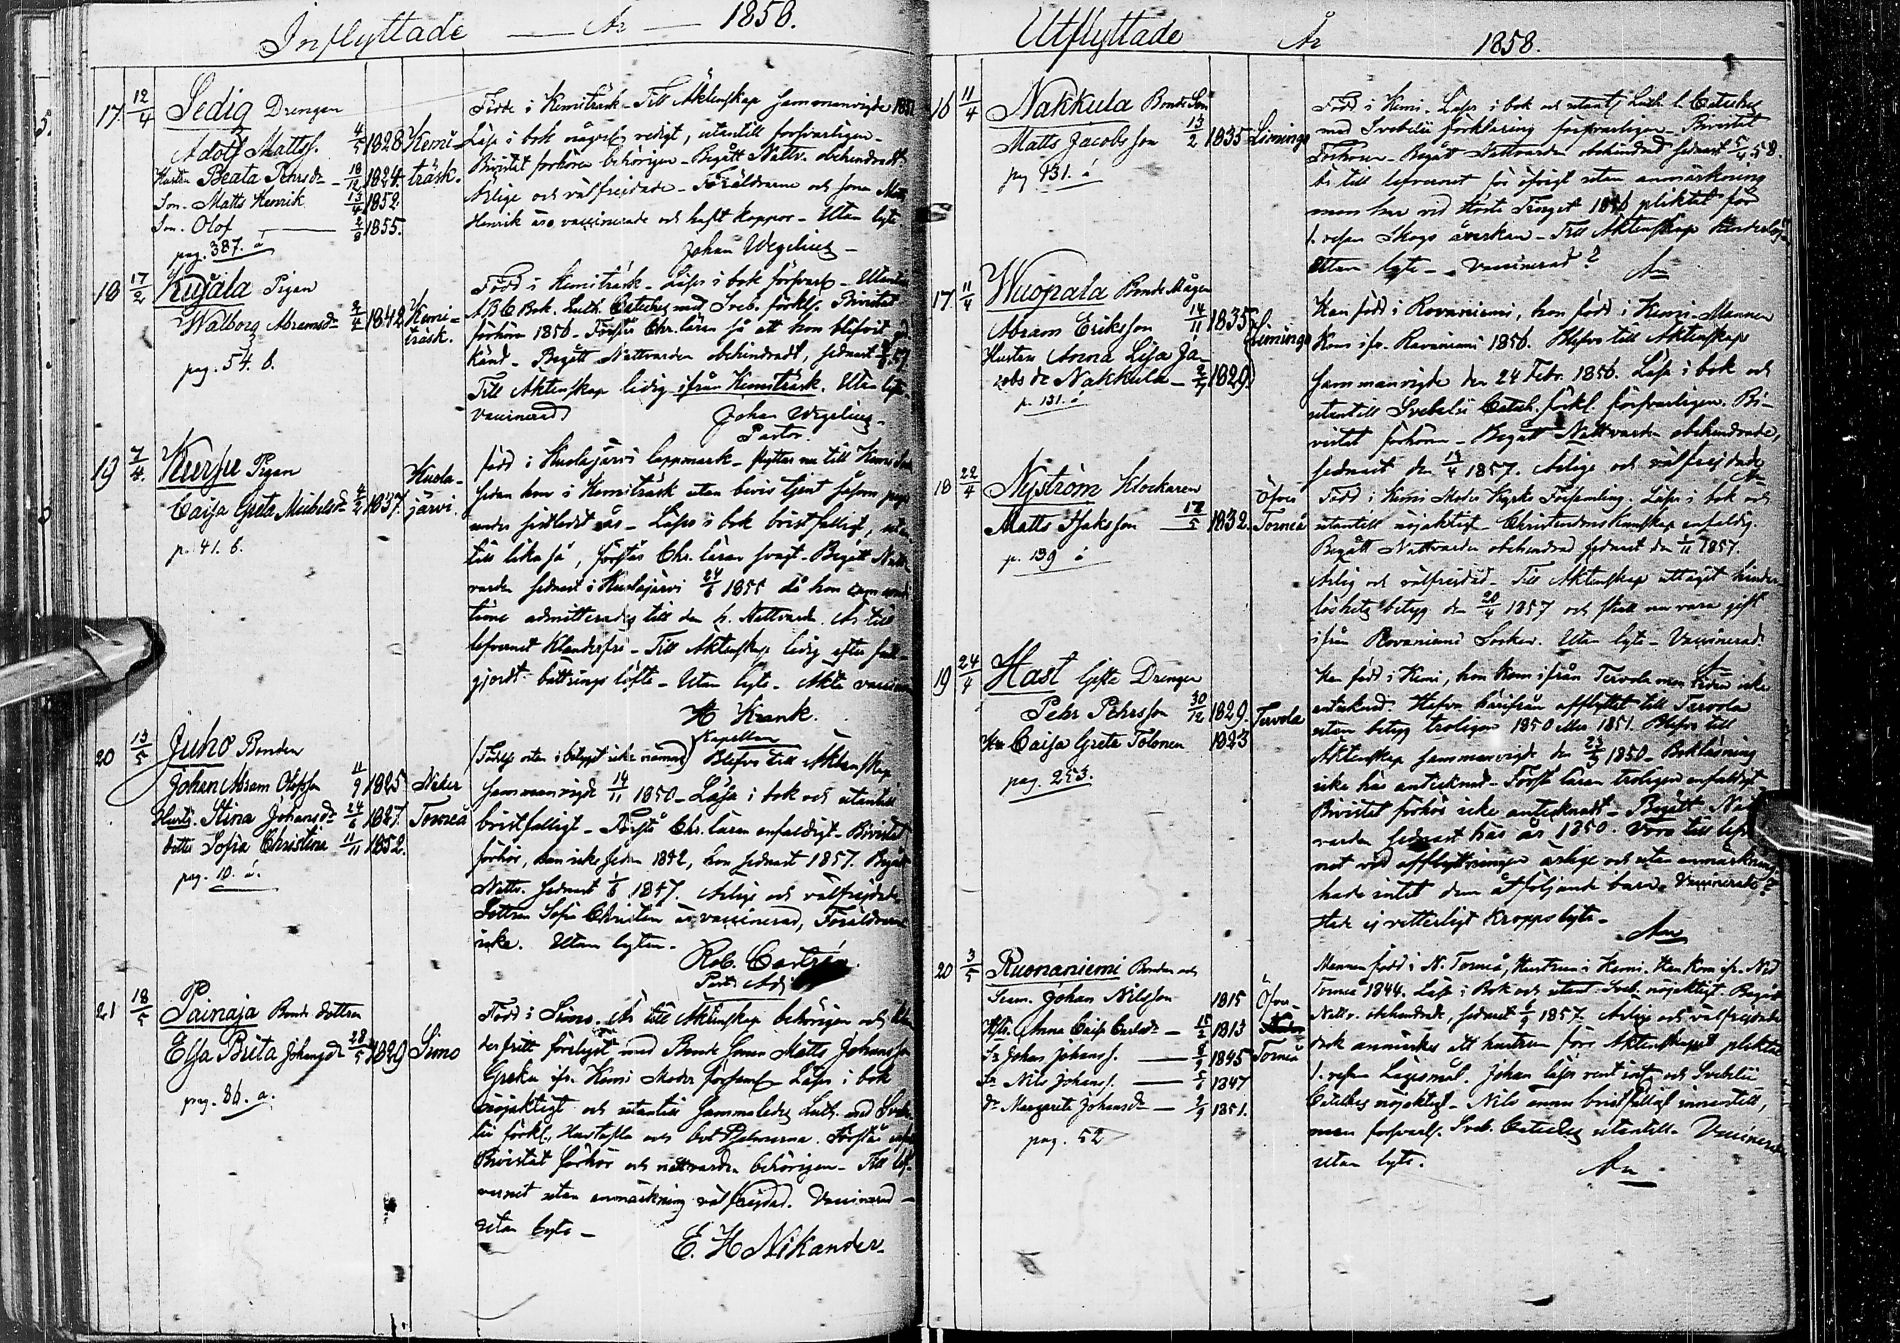 Inflyttade År 1858.
17. 12/4 Sedig Drengen
Adolf Mattss. 4/5 1828 Kemi-
Hustru Beata Pehrsdr 18/12 1824. träsk.
Son. Matts Henrik 13/4 1852.
Son. Olof 1855.
pag. 387. á
Född i Kemiträsk - Till Äktenskap sammanvigde
Läsa i bok någorlunda redigt, utantill försvarligen.
Bivistat förhören behörigen - Begått Nattv. obehindradt
Ärlige och välfrejdade - Föräldrarne och sonen Matts
Henrik äro vaccinerade och haft koppor - Utan lyte.
Johan Wegelius
18 17/2 Kujala Pigan
Walborg Abramsdr 1842 Kemi=
träsk.
pag. 54. b.
Född i Kemiträsk - Läser i bok försvarl. - Utantill
A B C Bok. Luth. Cateches med Sveb. förkl. Bivistat
förhören 1856 - Förstår Chr. läran så att hon blifvit
känd - Begått Nattvarden obehindradt, sednast
Till Äktenskap ledig ifrån Kemiträsk. Utan lyte.
Vaccinerad
Johan Wegelius
Pastor.
19 7/4. Kurju Pigan
Caisa Greta Michelsdr 1837. Kusla-
järvi.
p. 41. b.
född i Kuolajärvi lappmark - flyttar nu till Kemi
sedan hon i Kemiträsk utan bevis tjent såsom piga
- Läser i bok bristfälligt, utan-
till lika så, förstår Chr. läran svagt - Begått Natt-
varden sednast i Kuolajärvi 24/6 1855 då hon
admitterades till den h. Nattvard. Är till
lefvernet klanderfri - Till Äktenskap ledig efter
gjordt bättrings löfte - Utan lyte - Äkta vaccin
H Krank.
Kapellan
20 13/5 Juho Bonden
Johan Abram Olofsson 11/9 1825 Neder
Hustr. Stina Johansdr 24/6 1827. Torneå
dotter Sofia Christina 11/11 1852.
pag. 10. á.
(Födelse orten i betyget icke nämnd) Blefvo till Äktenskap
sammanvigde 14/11 1850 - Läsa i bok och utantill
bristfälligt - Förstå Chr. läran enfaldigt - Bivistat
förhör, han icke sedan 1852, hon sednast 1857. Begått
Nattv. sednast 1/6 1857. Ärlige och välfrejdade
Dottren Sofia Christina är vaccinerad, Föräldrarne
icke. Utan lyten -
Rob. Castrén
Past. Adj.
21 18/5 Painaja Bonde dottren
Elsa Brita Johansdr 28/5 1829 Simo
pag. 86. a.
Född i Simo. Är till Äktenskap behörigen och
förelyst med Bonde Sonen Matts Johansson
Greku ifr. Kemi Moder församl. Läser i bok
nöjaktigt och utantill Gammaledes Luth. med Sveb.
förkl., Hustafla och bot Psalmerna. Förstår
Bivistat förhör och nattvarden behörigen - Till lef-
vernet utan anmärkning välfrejdad. Vaccinerad -
utan lyte -
E. H Nikander
Utflyttade År 1858.
16 11/4 Nakkula Bonde Son
Matts Jacobsson 13/2 1835 Limingo
pag 131. á
Född i Kemi - Läser i bok och utantill Luth. l. Cateches
med Svebelii förklaring försvarligen - Bivistat
Förhören - Begått Nattvarden obehindrad sednast 5/4 58
är till lefvernet för öfrigt utan anmärkning
men har vid Höste Tinget 1856 pliktat för
1. resan Skogs åverkan - Till Äktenskap hinderlös -
Utan lyte - Vaccinerad?
17. 11/4 Wuopala Bonde Mågen
Abram Eriksson 14/11 1835 Limingo
Hustru Anna Lisa Ja-
cobs dr Nakkula - 1829
p. 131. á
Han född i Rovaniemi, hon född i Kemi - Mannen
Kom ifr. Rovaniemi 1856. Blefvo till Äktenskap
sammanvigde den 24 Febr. 1856. Läsa i bok och
utantill Svebelii Catech. förkl. försvarligen. Bi-
vistat förhören - Begått Nattvarden obehindrade,
sednast den 1857. Ärlige och välfrejdade
18 22/4 Nyström Klockaren
Matts Isaksson 17/5 1832. Öfver
Torneå
p. 139 á
Född i Kemi Moder Kyrko Församling. Läser i bok och
utantill nöjaktigt - Christendomskunskap enfaldig.
Begått Nattvarden obehindrad sednast den 1/11 1857
Ärlig och välfrejdad - Till Äktenskap uttagit hinder-
löshets betyg den 20/4 1857 och skall nu vara gift
ifrån Rovaniemi Socken. Utan lyte - Vaccinerad.
19 24/4 Hast Gifte Drengen
Pehr Pehrsson 30/12 1829. Tervola
Hu Caisa Greta Tolonen 1823
pag. 253.
Han född i Kemi, hon kom ifrån Tervola men icke
antecknad. Hafva härifrån afflyttat till Tervola
utan betyg troligen 1850 eller 1851. Blefvo till
Äktenskap sammanvigde den 1850 - Bokläsning
icke här antecknad - Förstå läran troligen enfaldigt
Bivistat förhör icke antecknadt - Begått Natt-
varden sednast här år 1850. Voro till lefver-
net vid afflyttningen ärlige och utan anmärkning,
hade intet dem åtföljande barn. Vaccinerade?
Hade ej vetterligt Kropps lyte -
20 3/5 Ruonaniemi Bonden och
Johan Nilsson 1815 Öfver-
Hstr. Anna Caisa Carlsdr - 15/2 1813
Sn Johan Johanss. 1845 Torneå
Sn Nils Johanss. 5/6 1847
dr Margareta Johansdr - 2/9 1851.
pag. 52
Mannen född i N. Torneå, Hustrun i Kemi. Han kom ifr. Ned
Torneå 1844. Läsa i Bok och utant. Sveb. nöjaktigt. Begått
Nattv. obehindrade, sednast 1857. Ärlige och välfrejdade
dock anmärkes att hustrun före Äktenskapet pliktat
1. resan Lägersmål. Johan läser rent inn. och Svebelii
Cateches nöjaktigt - Nils ännu bristfälligt innantill,
men försvarl. Sveb. Cateches utantill. Vaccinerade
utan lyte.